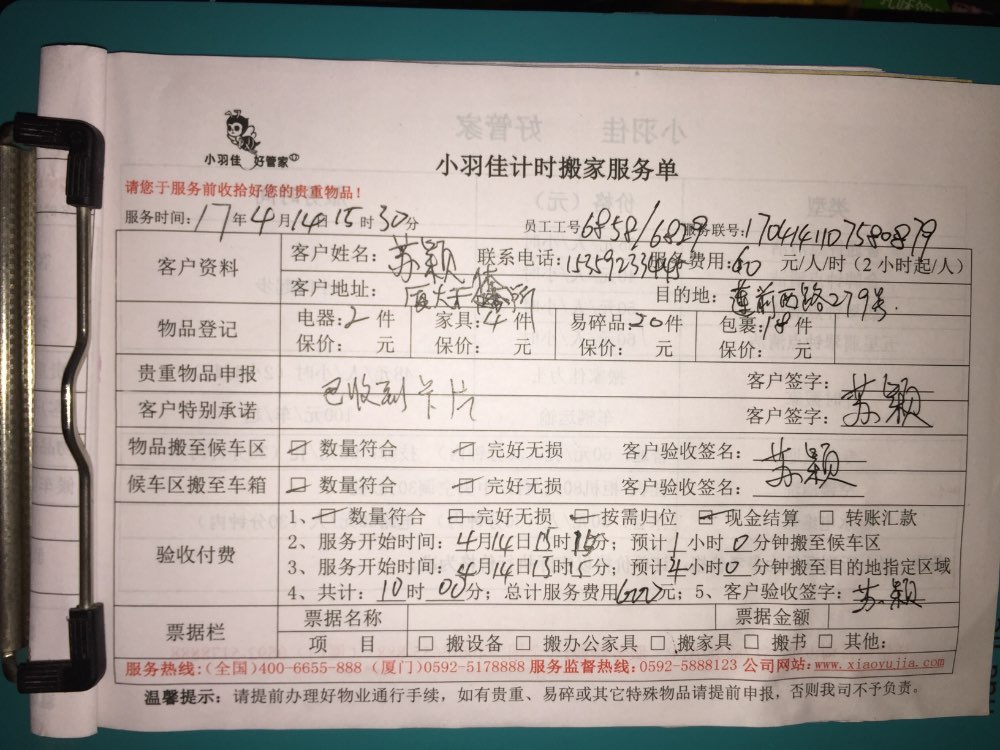 小羽佳 好管家
小羽佳计时搬家服务单
请您于服务前收拾好您的贵重物品！
服务时间：17年4月14日15时30分 员工工号6858/6829 服务联号：
客户资料 客户姓名：苏颖 联系电话： 服务费用：60元/人/时（2小时起/人）
客户地址：厦大 目的地：莲前西路279号
物品登记 电器：2件 家具：4件 易碎品：20件 包裹：18件
保价： 元 保价： 元 保价： 元 保价： 元
贵重物品申报 已收到卡片 客户签字：苏颖
客户特别承诺 客户签字：
物品搬至候车区 ☑ 数量符合 ☑ 完好无损 客户验收签名：苏颖
候车区搬至车箱 ☑ 数量符合 ☑ 完好无损 客户验收签名：
验收付费 1、☑ 数量符合 ☑ 完好无损 ☑ 按需归位 ☑ 现金结算 ☐ 转账汇款
2、服务开始时间：4月14日15时15分；预计1小时0分钟搬至候车区
3、服务开始时间：4月14日15时15分；预计4小时0分钟搬至目的地指定区域
4、共计：10时00分；总计服务费用600元；5、客户验收签字：苏颖
票据栏 票据名称 票据金额
项 目 ☐ 搬设备 ☐ 搬办公家具 ☐ 搬家具 ☐ 搬书 ☐ 其他：
服务热线：（全国）400-6655-888（厦门）0592-5178888 服务监督热线：0592-5888123 公司网站：www.xiaoyujia.com
温馨提示：请提前办理好物业通行手续，如有贵重、易碎或其它特殊物品请提前申报，否则我司不予负责。